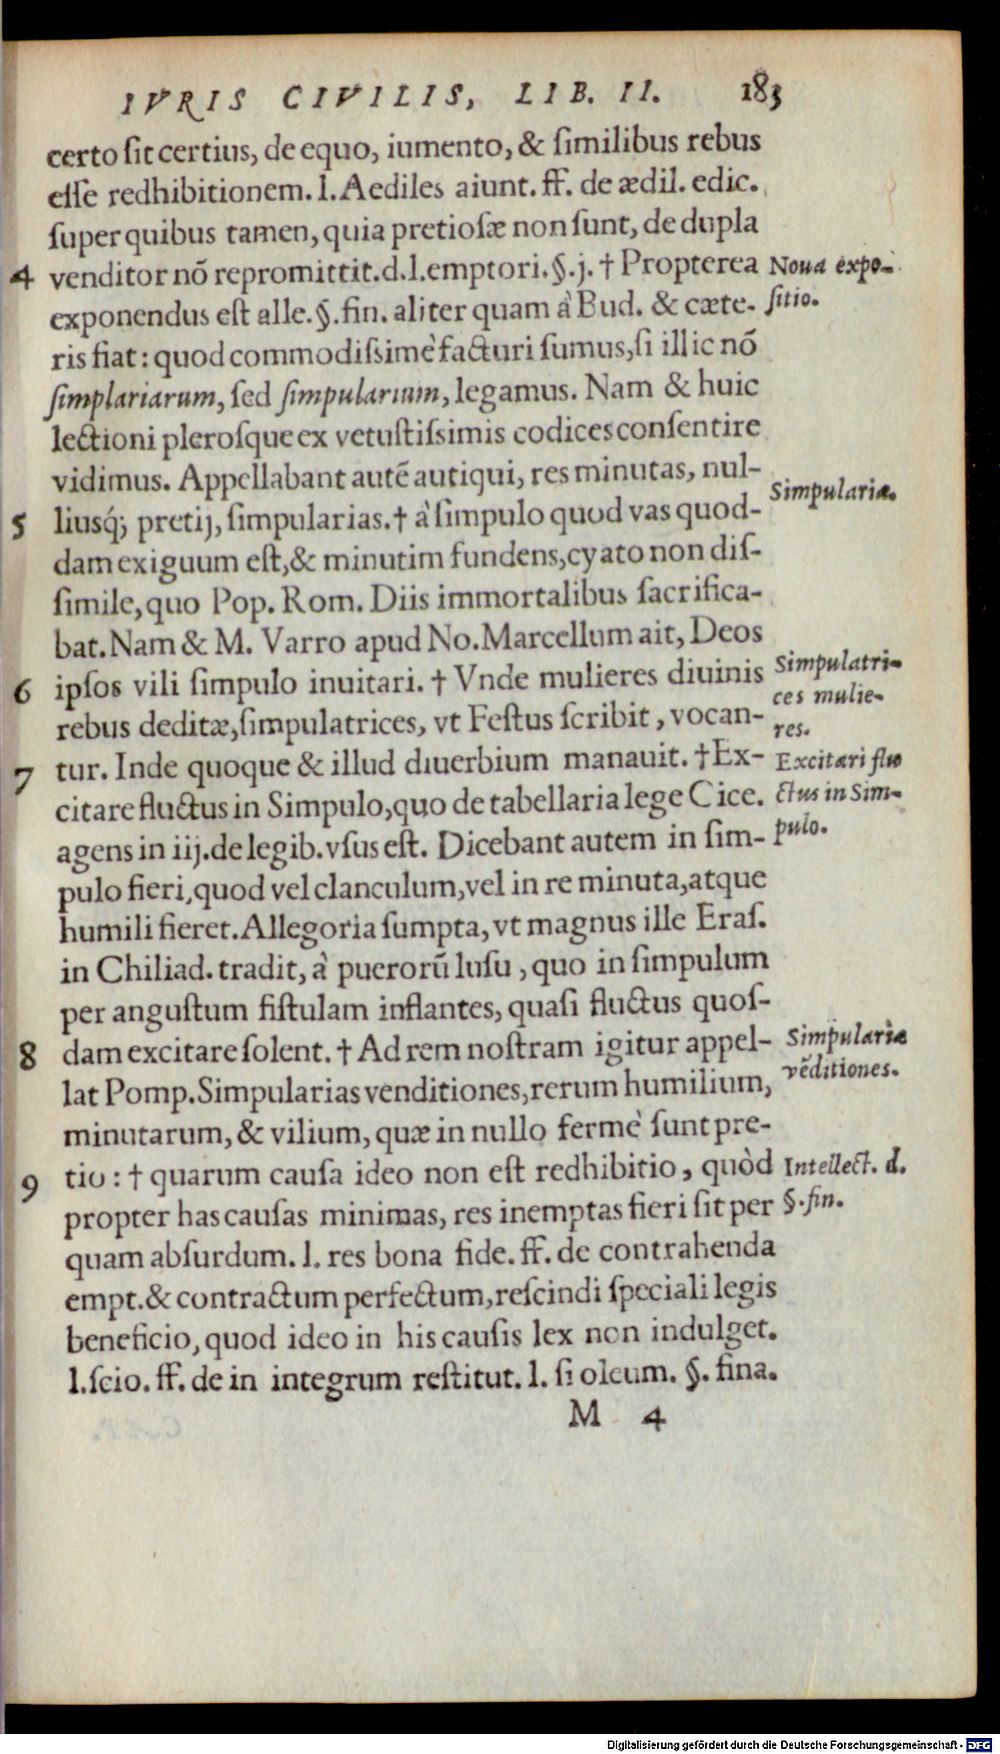 IVRIS CIVILIS, LIB. II. 183
certo sit certius, de equo, iumento, & ſimilibus rebus
eſſe redhibitionem. l. Aediles aiunt. ff. de ædil. edic.
ſuper quibus tamen, quia pretioſæ non ſunt, de dupla
4 venditor nõ repromittit. d. l. emptori. §. j. † Propterea Noua expo-
exponendus eſt alle. §. fin. aliter quam à Bud. & cæte- ſitio.
ris fiat: quod commodiſsimè facturi ſumus, ſi illic nõ
ſimplariarum, ſed ſimpularium, legamus. Nam & huic
lectioni pleroſque ex vetuſtiſsimis codices conſentire
vidimus. Appellabant autẽ autiqui, res minutas, nul-
5 liusq́; pretij, ſimpularias. † à ſimpulo quod vas quod- Simpulariæ.
dam exiguum eſt, & minutim fundens, cyato non diſ-
ſimile, quo Pop. Rom. Diis immortalibus ſacrifica-
bat. Nam & M. Varro apud No. Marcellum ait, Deos
6 ipſos vili ſimpulo inuitari. † Vnde mulieres diuinis Simpulatri-
ces mulie-
rebus deditæ, ſimpulatrices, vt Feſtus ſcribit, vocan- res.
7 tur. Inde quoque & illud diuerbium manauit. † Ex- Excitari flu
citare fluctus in Simpulo, quo de tabellaria lege Cice. ctus in Sim-
agens in iij. de legib. vſus eſt. Dicebant autem in ſim- pulo.
pulo fieri, quod vel clanculum, vel in re minuta, atque
humili fieret. Allegoria ſumpta, vt magnus ille Eraſ.
in Chiliad. tradit, à puerorũ luſu, quo in ſimpulum
per anguſtum fiſtulam inflantes, quaſi fluctus quoſ-
8 dam excitare ſolent. † Ad rem noſtram igitur appel- Simpulariæ
lat Pomp. Simpularias venditiones, rerum humilium, vẽditiones.
minutarum, & vilium, quæ in nullo fermè ſunt pre-
9 tio: † quarum cauſa ideo non eſt redhibitio, quòd Intellect. d.
propter has cauſas minimas, res inemptas fieri ſit per §. fin.
quam abſurdum. l. res bona fide. ff. de contrahenda
empt. & contractum perfectum, reſcindi ſpeciali legis
beneficio, quod ideo in his cauſis lex non indulget.
l. ſcio. ff. de in integrum reſtitut. l. ſi oleum. §. fina.
M 4
Digitalisierung gefördert durch die Deutsche Forschungsgemeinschaft - DFG